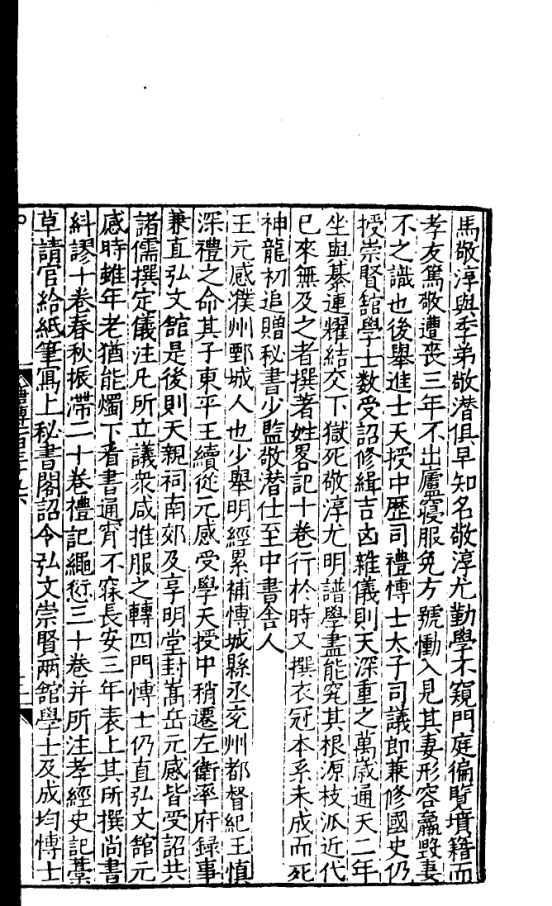 馬敬淳與季弟敬潜俱早知名敬淳尤勤學不窺門庭徧覽墳籍而
孝友篤敬遭喪三年不出廬寢服免方號慟入見其妻形容羸毀妻
不之識也後舉進士天授中歷司禮博士太子司議郎兼修國史仍
授崇賢舘學士数受詔修緝吉凶雜儀則天深重之萬歲通天二年
坐與綦連耀結交下獄死敬淳尤明譜學盡能究其根源枝派近代
已來無及之者撰著姓畧記十卷行扵時又撰衣冠本系未成而死
神龍初追贈秘書少監敬潜仕至中書舎人
王元感濮州鄄城人也少舉明經累補博城縣丞兖州都督紀王慎
深禮之命其子東平王續從元感受學天授中稍遷左衛率府録事
兼直弘文舘是後則天親祠南郊及享明堂封嵩岳元感皆受詔共
諸儒撰定儀注凡所立議衆咸推服之轉四門博士仍直弘文舘元
感時雖年老猶能燭下看書通宵不寐長安三年表上其所撰尚書
糾謬十卷春秋振滯二十卷禮記繩愆三十卷并所注孝經史記藁
草請官給紙筆寫上秘書閣詔令弘文崇賢兩舘學士及成均博士